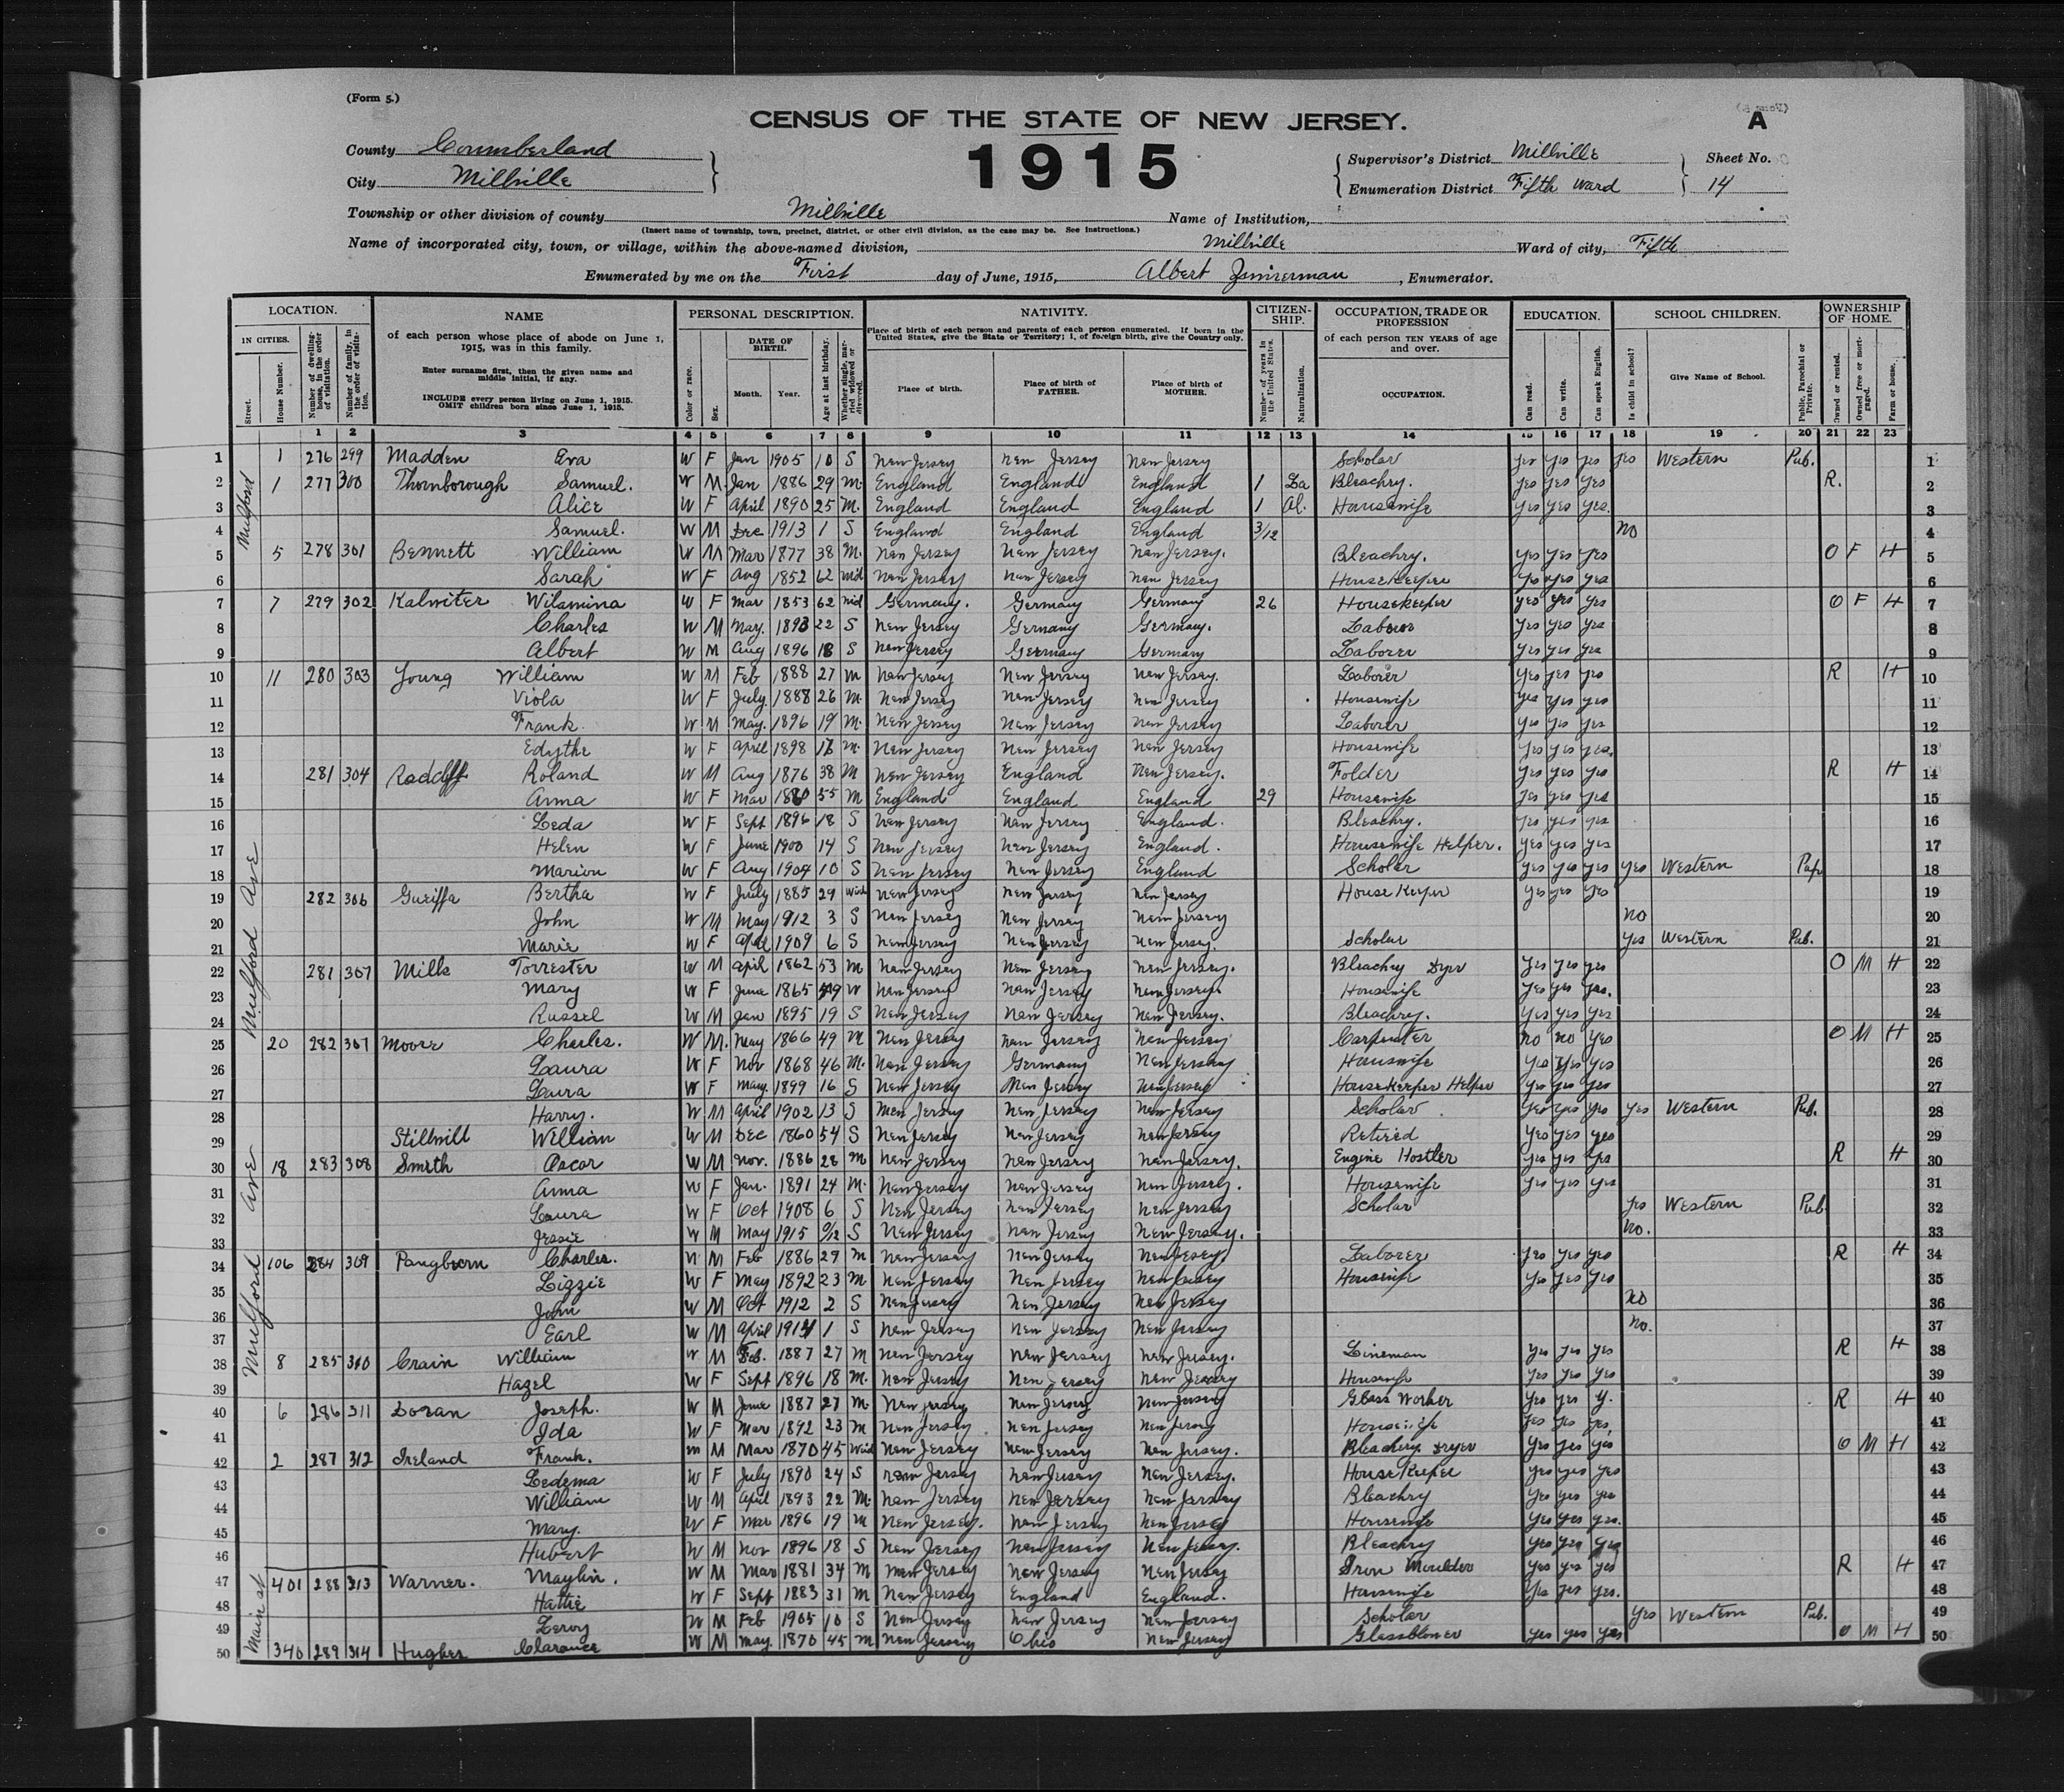 (Form 5.)
CENSUS OF THE STATE OF NEW JERSEY.
A
1915
County Coumberland
City Millville
Supervisor's District Millville
Enumeration District Fifth Ward
Sheet No.
14
Township or other division of county Millville Name of Institution,
(Insert name of township, town, precinct, district, or other civil division, as the case may be. See instructions.)
Name of incorporated city, town, or village, within the above-named division, Millville Ward of city, Fifth
Enumerated by me on the First day of June, 1915, Albert Zimmerman, Enumerator.
LOCATION. NAME PERSONAL DESCRIPTION. NATIVITY. CITIZENSHIP. OCCUPATION, TRADE OR PROFESSION EDUCATION. SCHOOL CHILDREN. OWNERSHIP OF HOME.
IN CITIES. Street. House Number. Number of dwelling-house, in the order of visitation. Number of family, in the order of visitation.
of each person whose place of abode on June 1, 1915, was in this family.
Enter surname first, then the given name and middle initial, if any.
INCLUDE every person living on June 1, 1915. OMIT children born since June 1, 1915.
Color or race. Sex. DATE OF BIRTH. Month. Year. Age at last birthday. Whether single, married widowed or divorced.
Place of birth of each person and parents of each person enumerated. If born in the United States, give the State or Territory; 1, of foreign birth, give the Country only.
Place of birth. Place of birth of FATHER. Place of birth of MOTHER.
Number of years in the United States. Naturalization.
of each person TEN YEARS of age and over. OCCUPATION.
Can read. Can write. Can speak English. Is child in school? Give Name of School. Public, Parochial or Private. Owned or rented. Owned free or mortgaged. Farm or house.
1 2 3 4 5 6 7 8 9 10 11 12 13 14 15 16 17 18 19 20 21 22 23
Mulford
1 1 276 299 Madden Eva W F Jan 1905 10 S New Jersey New Jersey New Jersey Scholar yes yes yes yes Western Pub. 1
2 1 277 300 Thornborough Samuel. W M. Jan 1886 29 M. England England England 1 Bleachry. yes yes yes R. 2
3 Alice W F April 1890 25 M. England England England 1 Al. Housewife yes yes yes. 3
4 Samuel. W M Dec 1913 1 S England England England 3/12 No 4
5 5 278 301 Bennett William W M Mar 1877 38 M. New Jersey New Jersey New Jersey. Bleachry. yes yes yes O F H 5
6 Sarah W F Aug 1852 62 Wid New Jersey New Jersey New Jersey HouseKeeper yes yes yes 6
7 7 279 302 Kalwiter Wilamina W F Mar 1853 62 Wid Germany. Germany Germany 26 Housekeeper yes yes yes O F H 7
8 Charles W M May. 1893 22 S New Jersey Germany Germany. Laborer yes yes yes 8
9 Albert W M Aug 1896 18 S New Jersey Germany Germany Laborer yes yes yes 9
10 11 280 303 Young William W M Feb 1888 27 M New Jersey New Jersey New Jersey. Laborer yes yes yes R H 10
11 Viola W F July 1888 26 M. New Jersey New Jersey New Jersey Housewife yes yes yes 11
12 Frank. W M May. 1896 19 M. New Jersey New Jersey New Jersey Laborer yes yes yes 12
13 Edythe W F April 1898 M. New Jersey New Jersey New Jersey Housewife yes yes yes. 13
Mulford Ave
14 281 304 Radcliff Roland W M Aug 1876 38 M New Jersey England New Jersey. Folder yes yes yes R H 14
15 Anna W F Mar 55 M England England England 29 Housewife yes yes yes 15
16 Leda W F Sept 1896 18 S New Jersey New Jersey England. Bleachry. yes yes yes 16
17 Helen W F June 1900 14 S New Jersey New Jersey England. Housewife Helper. yes yes yes 17
18 Marion W F Aug 1904 10 S New Jersey New Jersey England Scholar yes yes yes yes Western 18
19 282 306 Guriffa Bertha W F July 1885 29 Wid New Jersey New Jersey New Jersey House Keeper yes yes yes 19
20 John W M May 1912 3 S New Jersey New Jersey New Jersey No 20
21 Marie W F April 1909 6 S New Jersey New Jersey New Jersey. Scholar yes Western Pub. 21
22 281 307 Mills Torrester W M April 1862 53 M New Jersey New Jersey New Jersey. Bleachry Dyer yes yes yes O M H 22
23 Mary W F June 1865 49 W New Jersey New Jersey New Jersey. Housewife yes yes yes. 23
24 Russel W M Jan 1895 19 S New Jersey New Jersey New Jersey. Bleachry. yes yes yes 24
25 20 282 307 Moore Charles. W M. May 1866 49 M New Jersey New Jersey New Jersey Carpenter no no yes O M H 25
26 Laura W F Nov 1868 46 M. New Jersey Germany New Jersey Housewife yes yes yes 26
27 Laura W F May. 1899 16 S New Jersey New Jersey New Jersey HouseKeeper Helper yes yes yes 27
28 Harry. W M April 1902 13 S New Jersey New Jersey New Jersey Scholar yes yes yes yes Western Pub. 28
29 Stillwill William W M Dec 1860 54 S New Jersey New Jersey New Jersey Retired yes yes yes 29
Mulford Ave
30 18 283 308 Smith Oscar W M Nov. 1886 28 M New Jersey New Jersey New Jersey. Engine Hostler yes yes yes R H 30
31 Anna W F Jan. 1891 24 M. New Jersey New Jersey New Jersey. Housewife yes yes yes 31
32 Laura W F Oct 1908 6 S New Jersey New Jersey New Jersey Scholar yes Western Pub 32
33 Jessie W M May 1915 0/12 S New Jersey New Jersey New Jersey. No. 33
34 106 284 309 Pangburn Charles. W M Feb 1886 29 M New Jersey New Jersey New Jersey. Laborer yes yes yes R H 34
35 Lizzie W F May 1892 23 M New Jersey New Jersey New Jersey Housewife yes yes yes 35
36 John W M Oct 1912 2 S New Jersey New Jersey New Jersey no 36
37 Earl W M April 1914 1 S New Jersey New Jersey New Jersey no. 37
38 8 285 310 Crain William W M Feb. 1887 27 M New Jersey New Jersey New Jersey. Lineman yes yes yes R H 38
39 Hazel W F Sept 1896 18 M. New Jersey New Jersey New Jersey Housewife yes yes yes 39
40 6 286 311 Doran Joseph. W M June 1887 27 M. New Jersey New Jersey New Jersey Glass Worker yes yes y. R H 40
41 Ida W F Mar 1892 23 M New Jersey New Jersey New Jersey Housewife yes yes yes, 41
42 2 287 312 Ireland Frank. M Mar 1870 45 Wid New Jersey New Jersey New Jersey. Bleachry Dryer yes yes yes O M H 42
43 Ledema W F July 1890 24 S New Jersey New Jersey New Jersey. House Keeper yes yes yes 43
44 William W M April 1893 22 M. New Jersey New Jersey New Jersey Bleachry yes yes yes 44
45 Mary. W F Mar 1896 19 M New Jersey. New Jersey New Jersey Housewife yes yes yes. 45
46 Hubert W M Nov 1896 18 S New Jersey New Jersey New Jersey. Bleachry yes yes yes 46
Main st
47 401 288 313 Warner. Maylin. W M Mar 1881 34 M New Jersey New Jersey New Jersey Iron Moulder yes yes yes R H 47
48 Hattie W F Sept 1883 31 M New Jersey England England. Housewife yes yes yes. 48
49 Leroy W M Feb 1905 10 S New Jersey New Jersey New Jersey Scholar yes Western Pub. 49
50 340 289 314 Hughes Clarance W M May. 1870 45 M New Jersey Ohio New Jersey Glassblower yes yes yes O M H 50